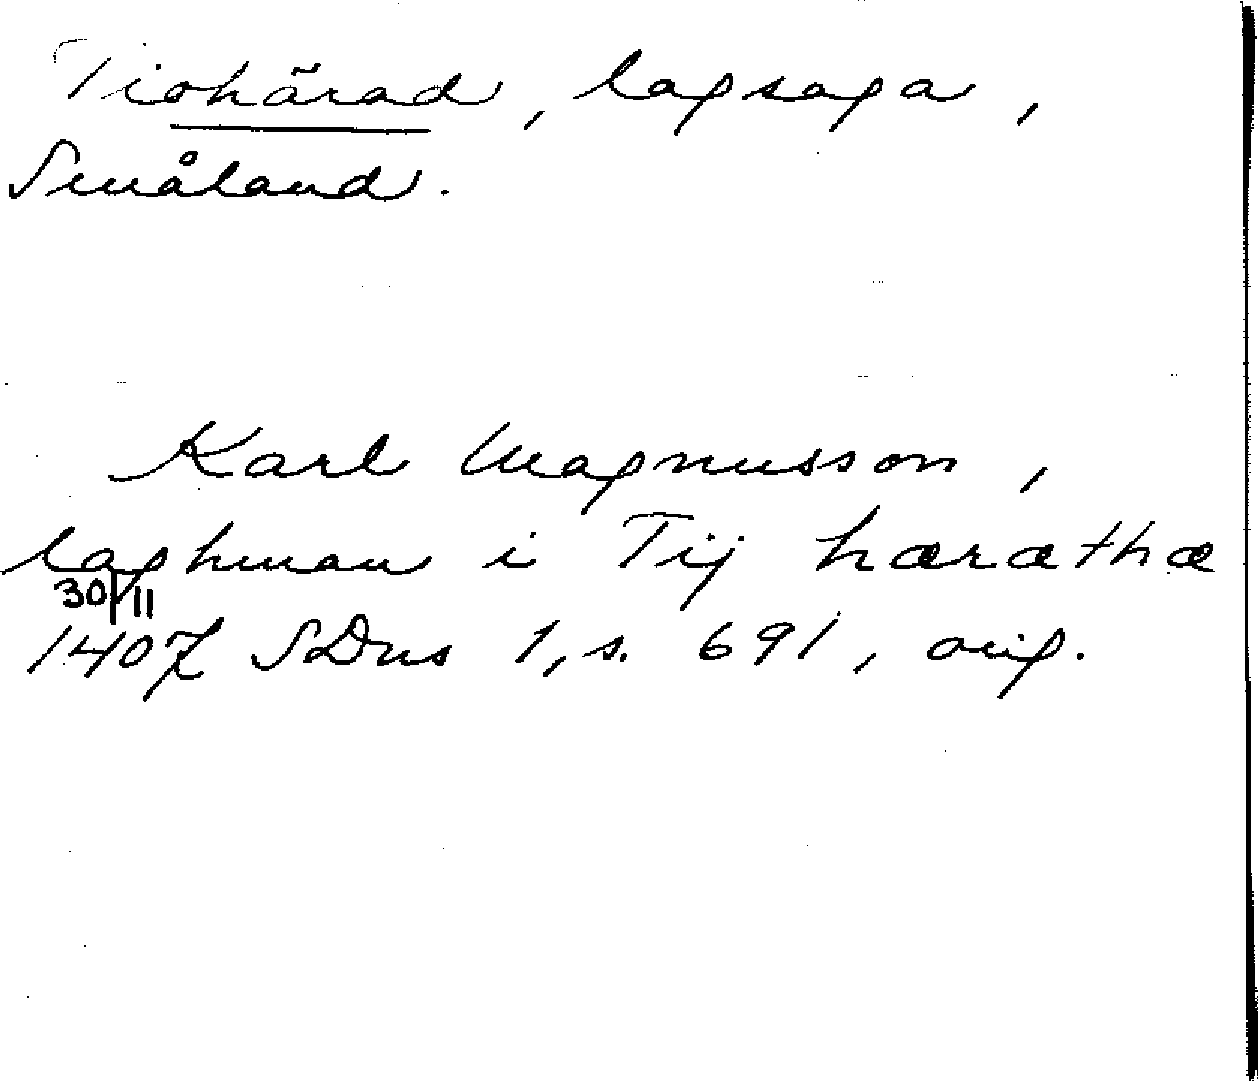 Tiohärad, lagsaga,
Småland.
Karl Magnusson,
laghman i Tij hæræthæ
30/11
1407 SDns 1, s. 691, orig.